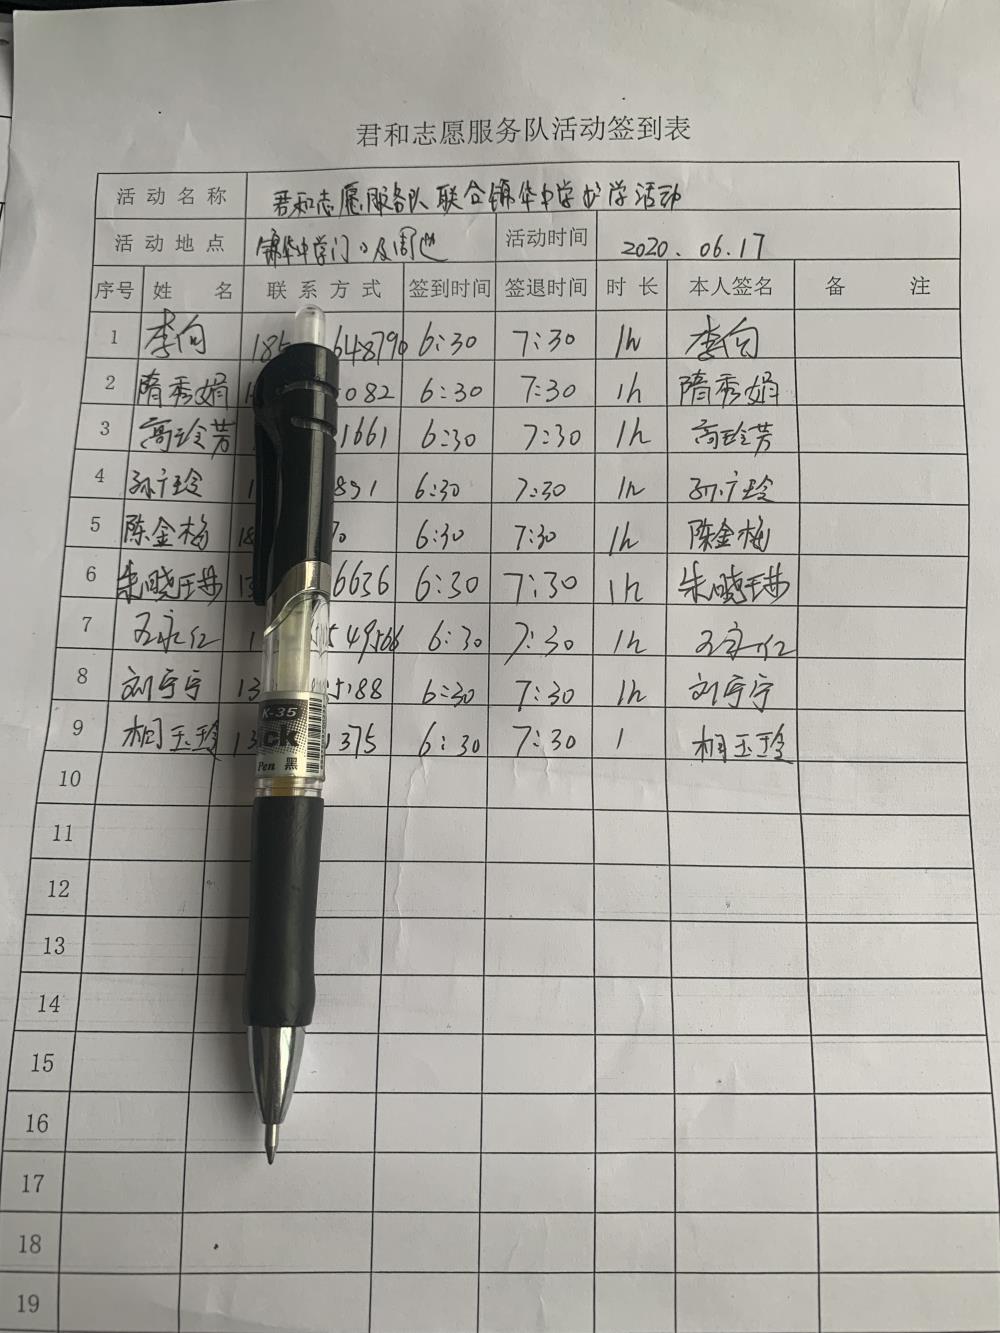 君和志愿服务队活动签到表
活动名称 君和志愿服务队联合锦华中学护学活动
活动地点 锦华中学门口及周边 活动时间 2020.06.17
序号 姓名 联系方式 签到时间 签退时间 时长 本人签名 备注
1 李向 185 648790 6:30 7:30 1h 李向
2 隋秀娟 1 5082 6:30 7:30 1h 隋秀娟
3 高玲芳 1661 6:30 7:30 1h 高玲芳
4 孙广玲 1 891 6:30 7:30 1h 孙广玲
5 陈金梅 18 70 6:30 7:30 1h 陈金梅
6 朱晓琳 13 6636 6:30 7:30 1h 朱晓琳
7 1 549566 6:30 7:30 1h
8 刘宁宁 13 5188 6:30 7:30 1h 刘宁宁
9 相玉玲 13 1375 6:30 7:30 1 相玉玲
K-35
ck
Pen 黑
10
11
12
13
14
15
16
17
18
19